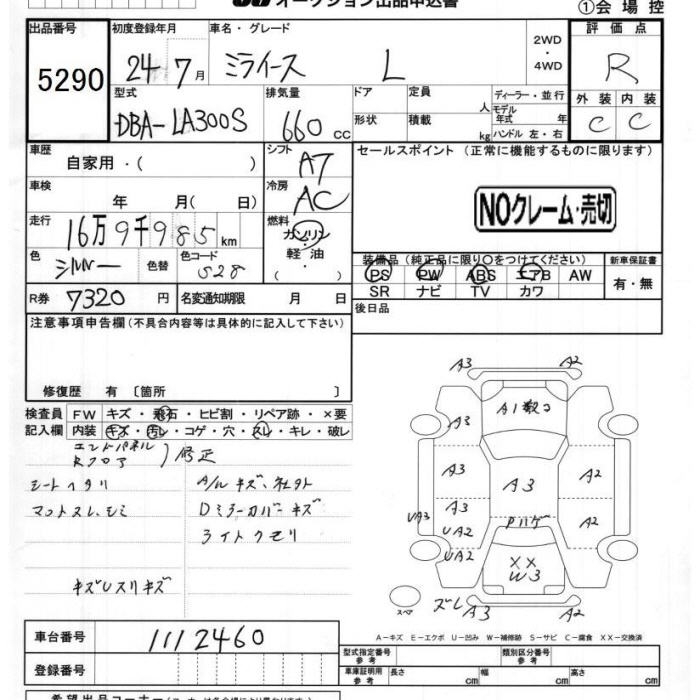 オークション出品申込書
①会場控
出品番号
5290
初度登録年月
24年7月
車名・グレード
ミライース L
2WD
・
4WD
評価点
R
型式
DBA-LA300S
排気量
660 CC
ドア
形状
定員 人
積載 kg
ディーラー・並行
モデル年式 年
ハンドル 左・右
外装 内装
C C
車歴
自家用・( )
シフト
AT
セールスポイント (正常に機能するものに限ります)
NOクレーム・売切
車検
年 月( 日)
冷房
AC
走行
16万9千985km
燃料
ガソリン
・
軽油
・
色
シルバー
色替
色コード
S28
装備品 (純正品に限り○をつけてください)
PS PW ABS エアB AW
SR ナビ TV カワ
新車保証書
有・無
R券 7320 円
名変通知期限 月 日
後日品
注意事項申告欄(不具合内容等は具体的に記入して下さい)
修復歴 有 〔箇所 〕
検査員
記入欄
FW キズ・飛石・ヒビ割・リペア跡・×要
内装 キズ・汚レ・コゲ・穴・スレ・キレ・破レ
エンドパネル
Rフロア
修正
シートヘタリ
A/Wキズ、社外
マットスレ、シミ
Dミラーカバーキズ
ライトクモリ
キズUスリキズ
A3 A2
A3 A1
A3 A3 A2
A3 Pハゲ A2
UA3 UA2
UA2 XX
W3
スペア
ズレ A3 A2
A-キズ E-エクボ U-凹み W-補修跡 S-サビ C-腐食 XX-交換済
車台番号 1112460
登録番号
型式指定番号
参考
類別区分番号
参考
車庫証明用
参考
長さ cm 幅 cm 高さ cm
希望出品コーナー